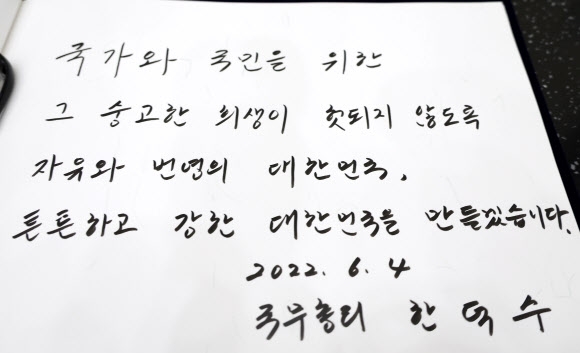 국가와 국민을 위한
그 숭고한 희생이 헛되지 않도록
자유와 번영의 대한민국,
튼튼하고 강한 대한민국을 만들겠습니다.
2022. 6. 4
국무총리 한덕수